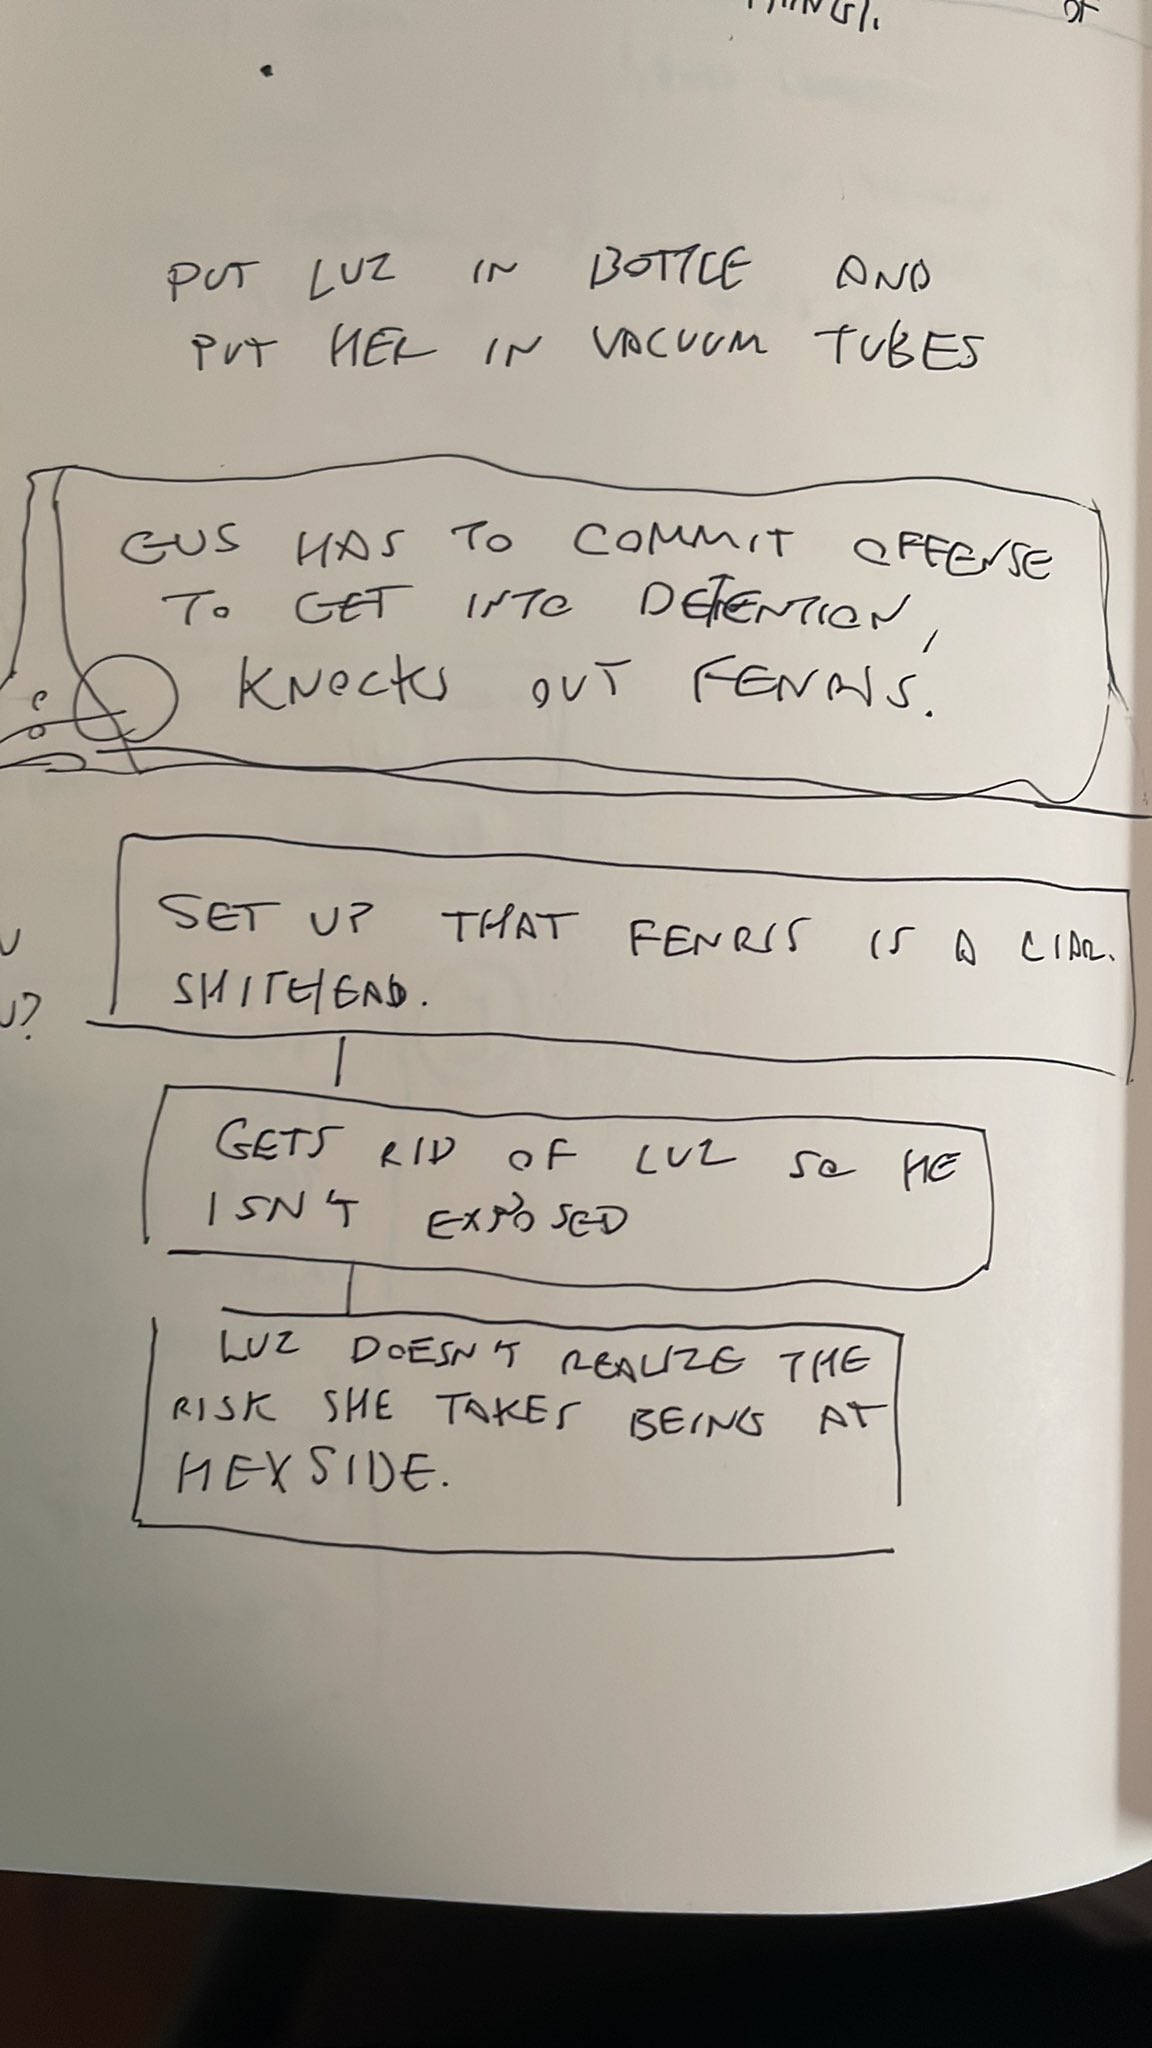 OF
PUT LUZ IN BOTTLE AND
PUT HER IN VACUUM TUBES
GUS HAS TO COMMIT OFFENSE
TO GET INTO DETENTION,
KNOCKS OUT FENRIS.
SET UP THAT FENRIS IS A LIAR.
SHITHEAD.
U?
GETS RID OF LUZ SO HE
ISN'T EXPOSED
LUZ DOESN'T REALIZE THE
RISK SHE TAKES BEING AT
HEXSIDE.